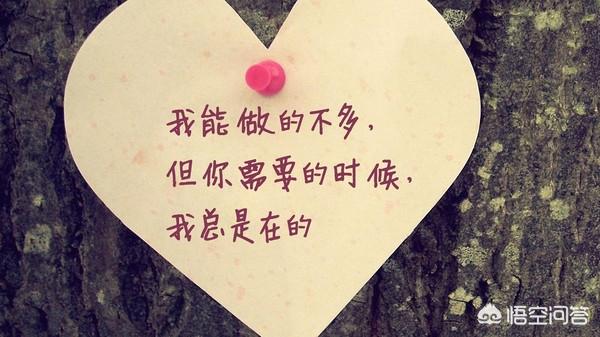 我能做的不多，
但你需要的时候，
我总是在的
悟空问答